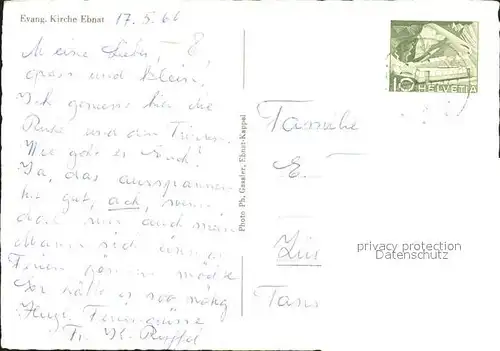 Evang. Kirche Ebnat
17.5.66
Meine Lieben, E,
gross und klein,
Ich geniesse hier die
Ruhe und den
Wie goht es Euch?
Ja, das ausspannen
tut gut, ach, wenn
doch nur auch mein
Mann sich einmal
Ferien gönnen möchte
Er hätte es soo nötig
Herzl. Feriengrüsse
Fr.
Photo Ph. Gessler, Ebnat-Kappel
10 HELVETIA
Familie
E.
Zür
privacy protection
Datenschutz